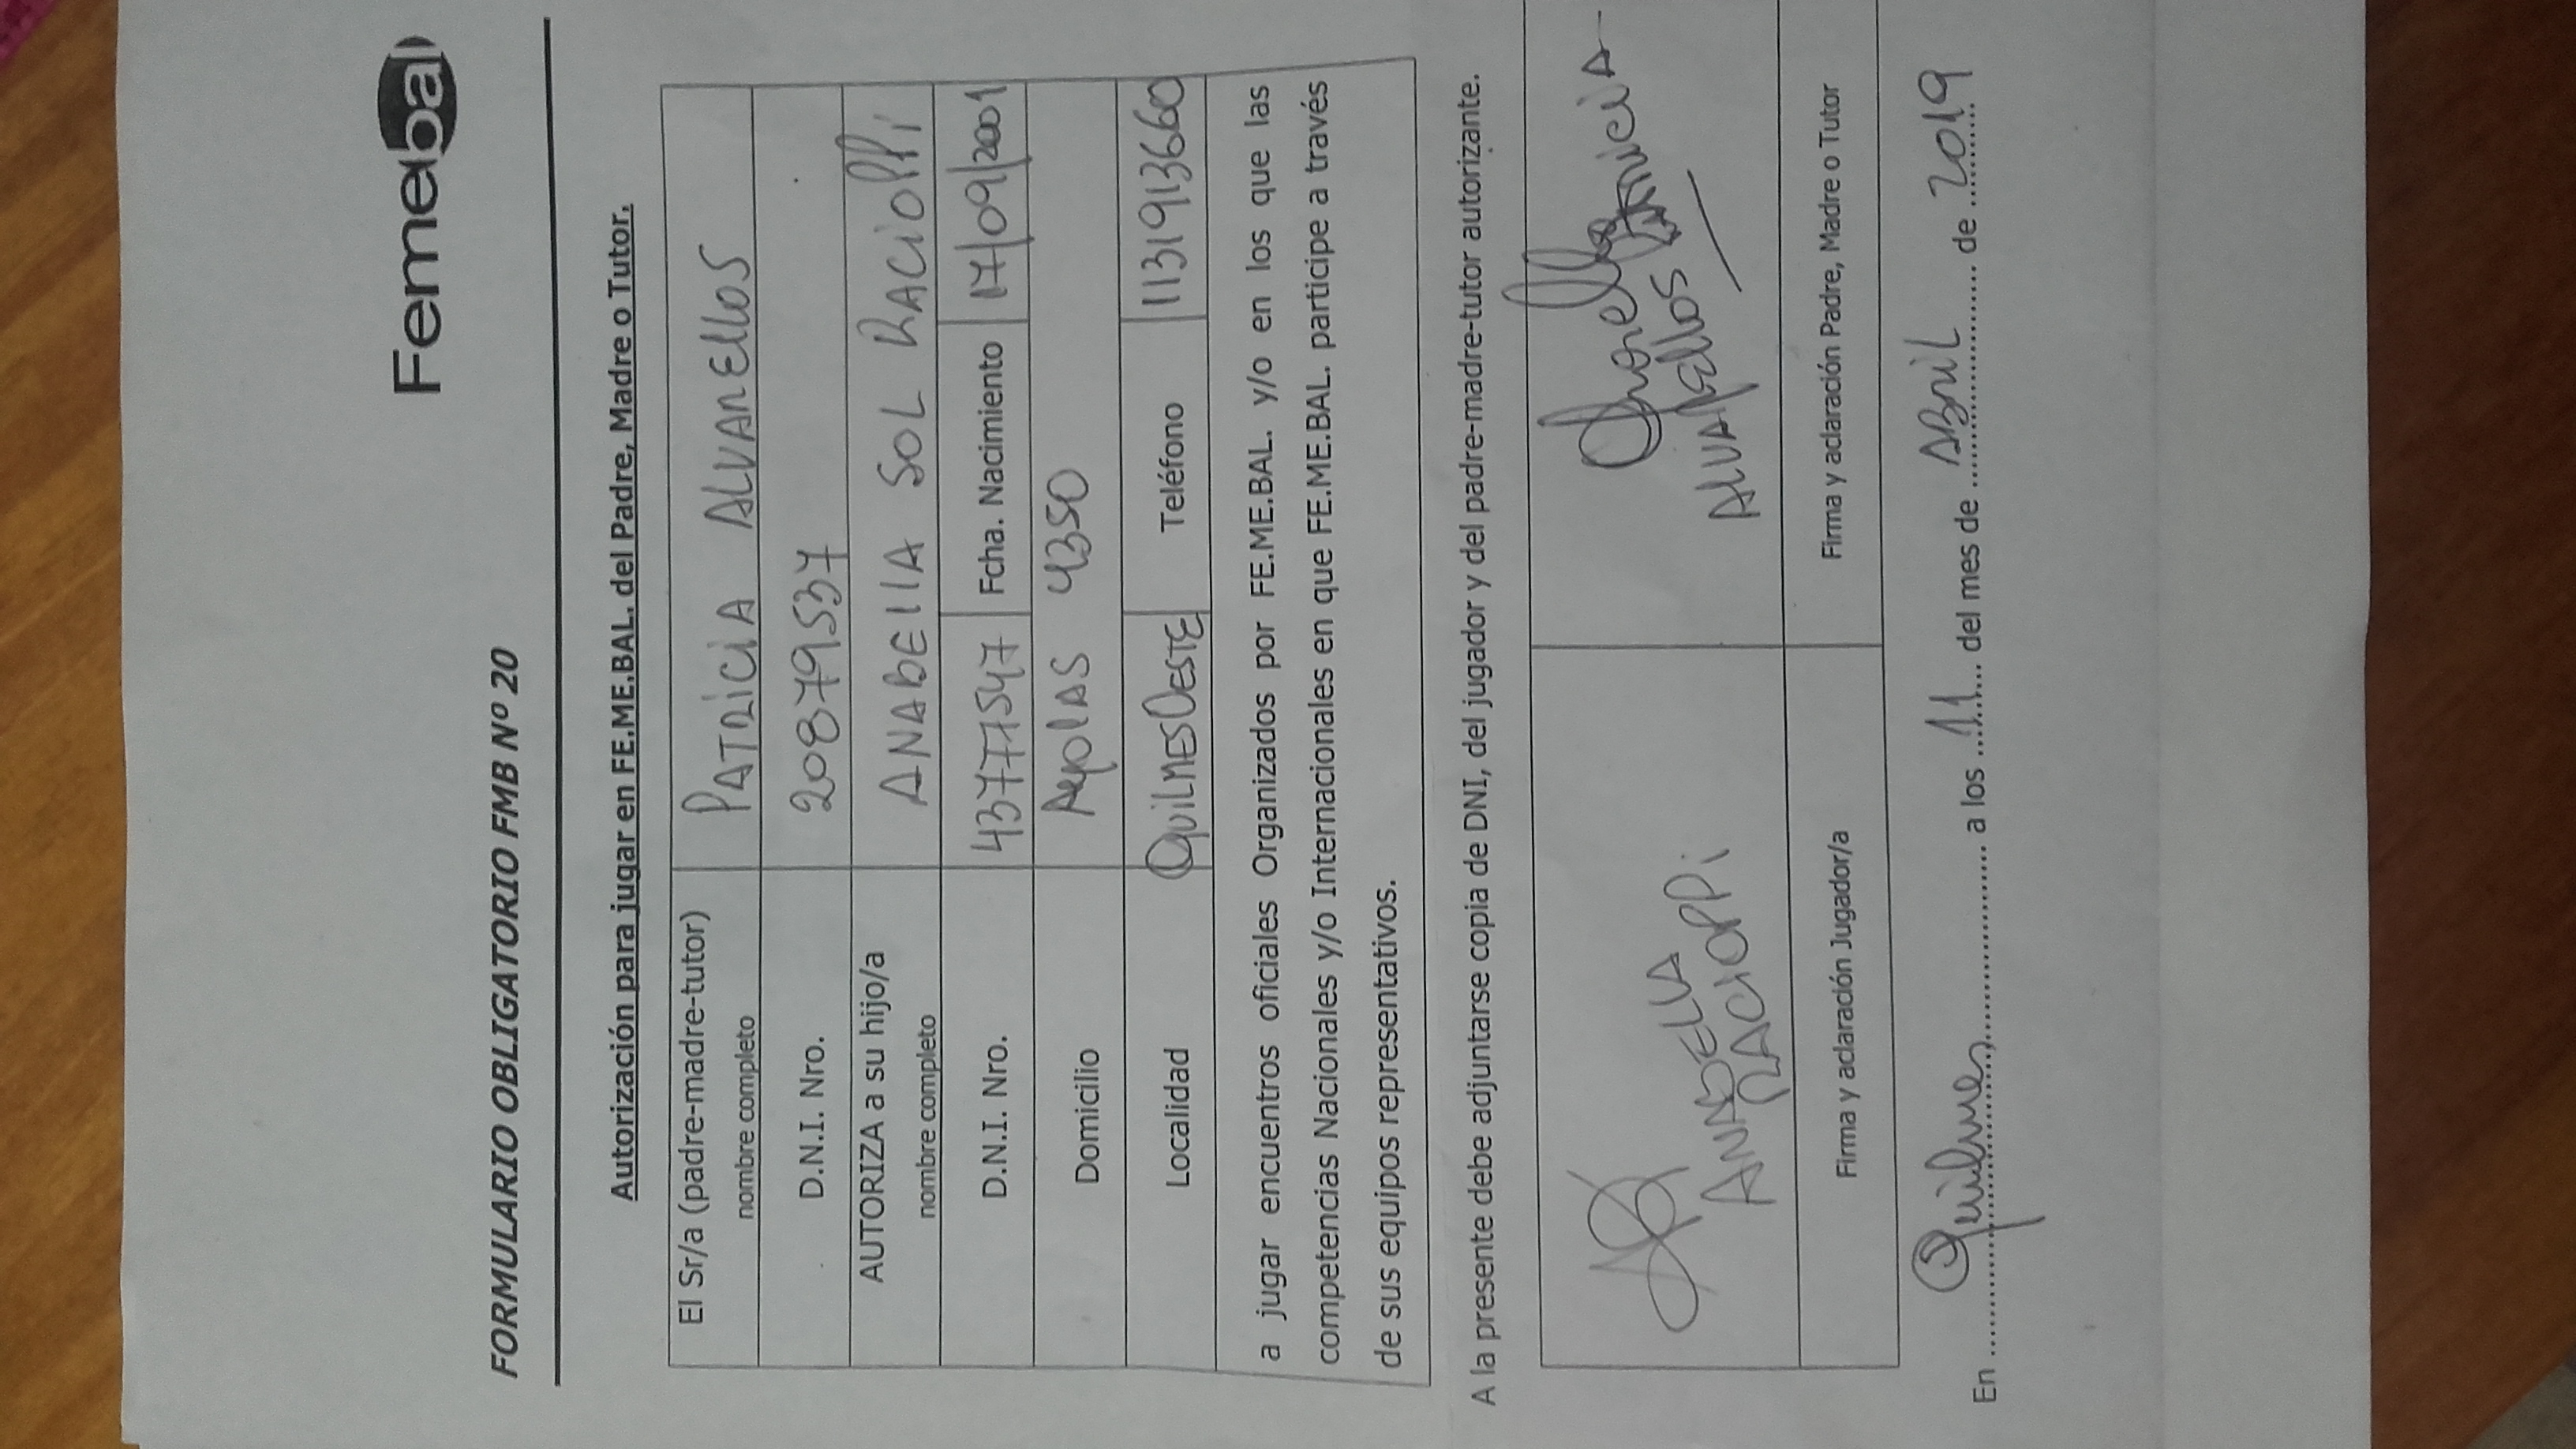 Femebal
FORMULARIO OBLIGATORIO FMB Nº 20
Autorización para jugar en FE.ME.BAL. del Padre, Madre o Tutor.
El Sr/a (padre-madre-tutor) nombre completo PATRICIA ALVARELLOS
D.N.I. Nro. 20879537
AUTORIZA a su hijo/a nombre completo ANABELLA SOL RACIOPPI
D.N.I. Nro. 43777547 Fcha. Nacimiento 17/09/2001
Domicilio Ayolas 4350
Localidad QUILMES OESTE Teléfono 1131913660
a jugar encuentros oficiales Organizados por FE.ME.BAL. y/o en los que las
competencias Nacionales y/o Internacionales en que FE.ME.BAL. participe a través
de sus equipos representativos.
A la presente debe adjuntarse copia de DNI, del jugador y del padre-madre-tutor autorizante.
ANABELLA
RACIOPPI
ALVARELLOS PATRICIA
Firma y aclaración Jugador/a
Firma y aclaración Padre, Madre o Tutor
En Quilmes, a los 11 del mes de ABRIL de 2019